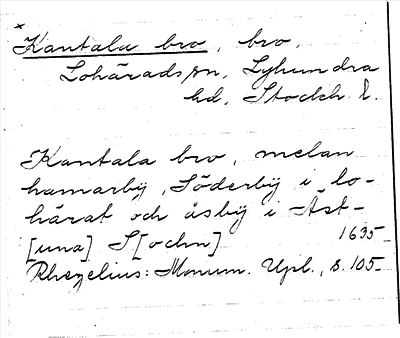 ×
Kantala bro, bro,
Lohärads sn, Lyhundra
hd, Stockh. l.
Kantala bro, melan
hamarbÿ, Söderbÿ i lo-
härat och åsbÿ i Äst-
[una] S[ochn] 1635
Rhezelius: Monum. Upl., s. 105